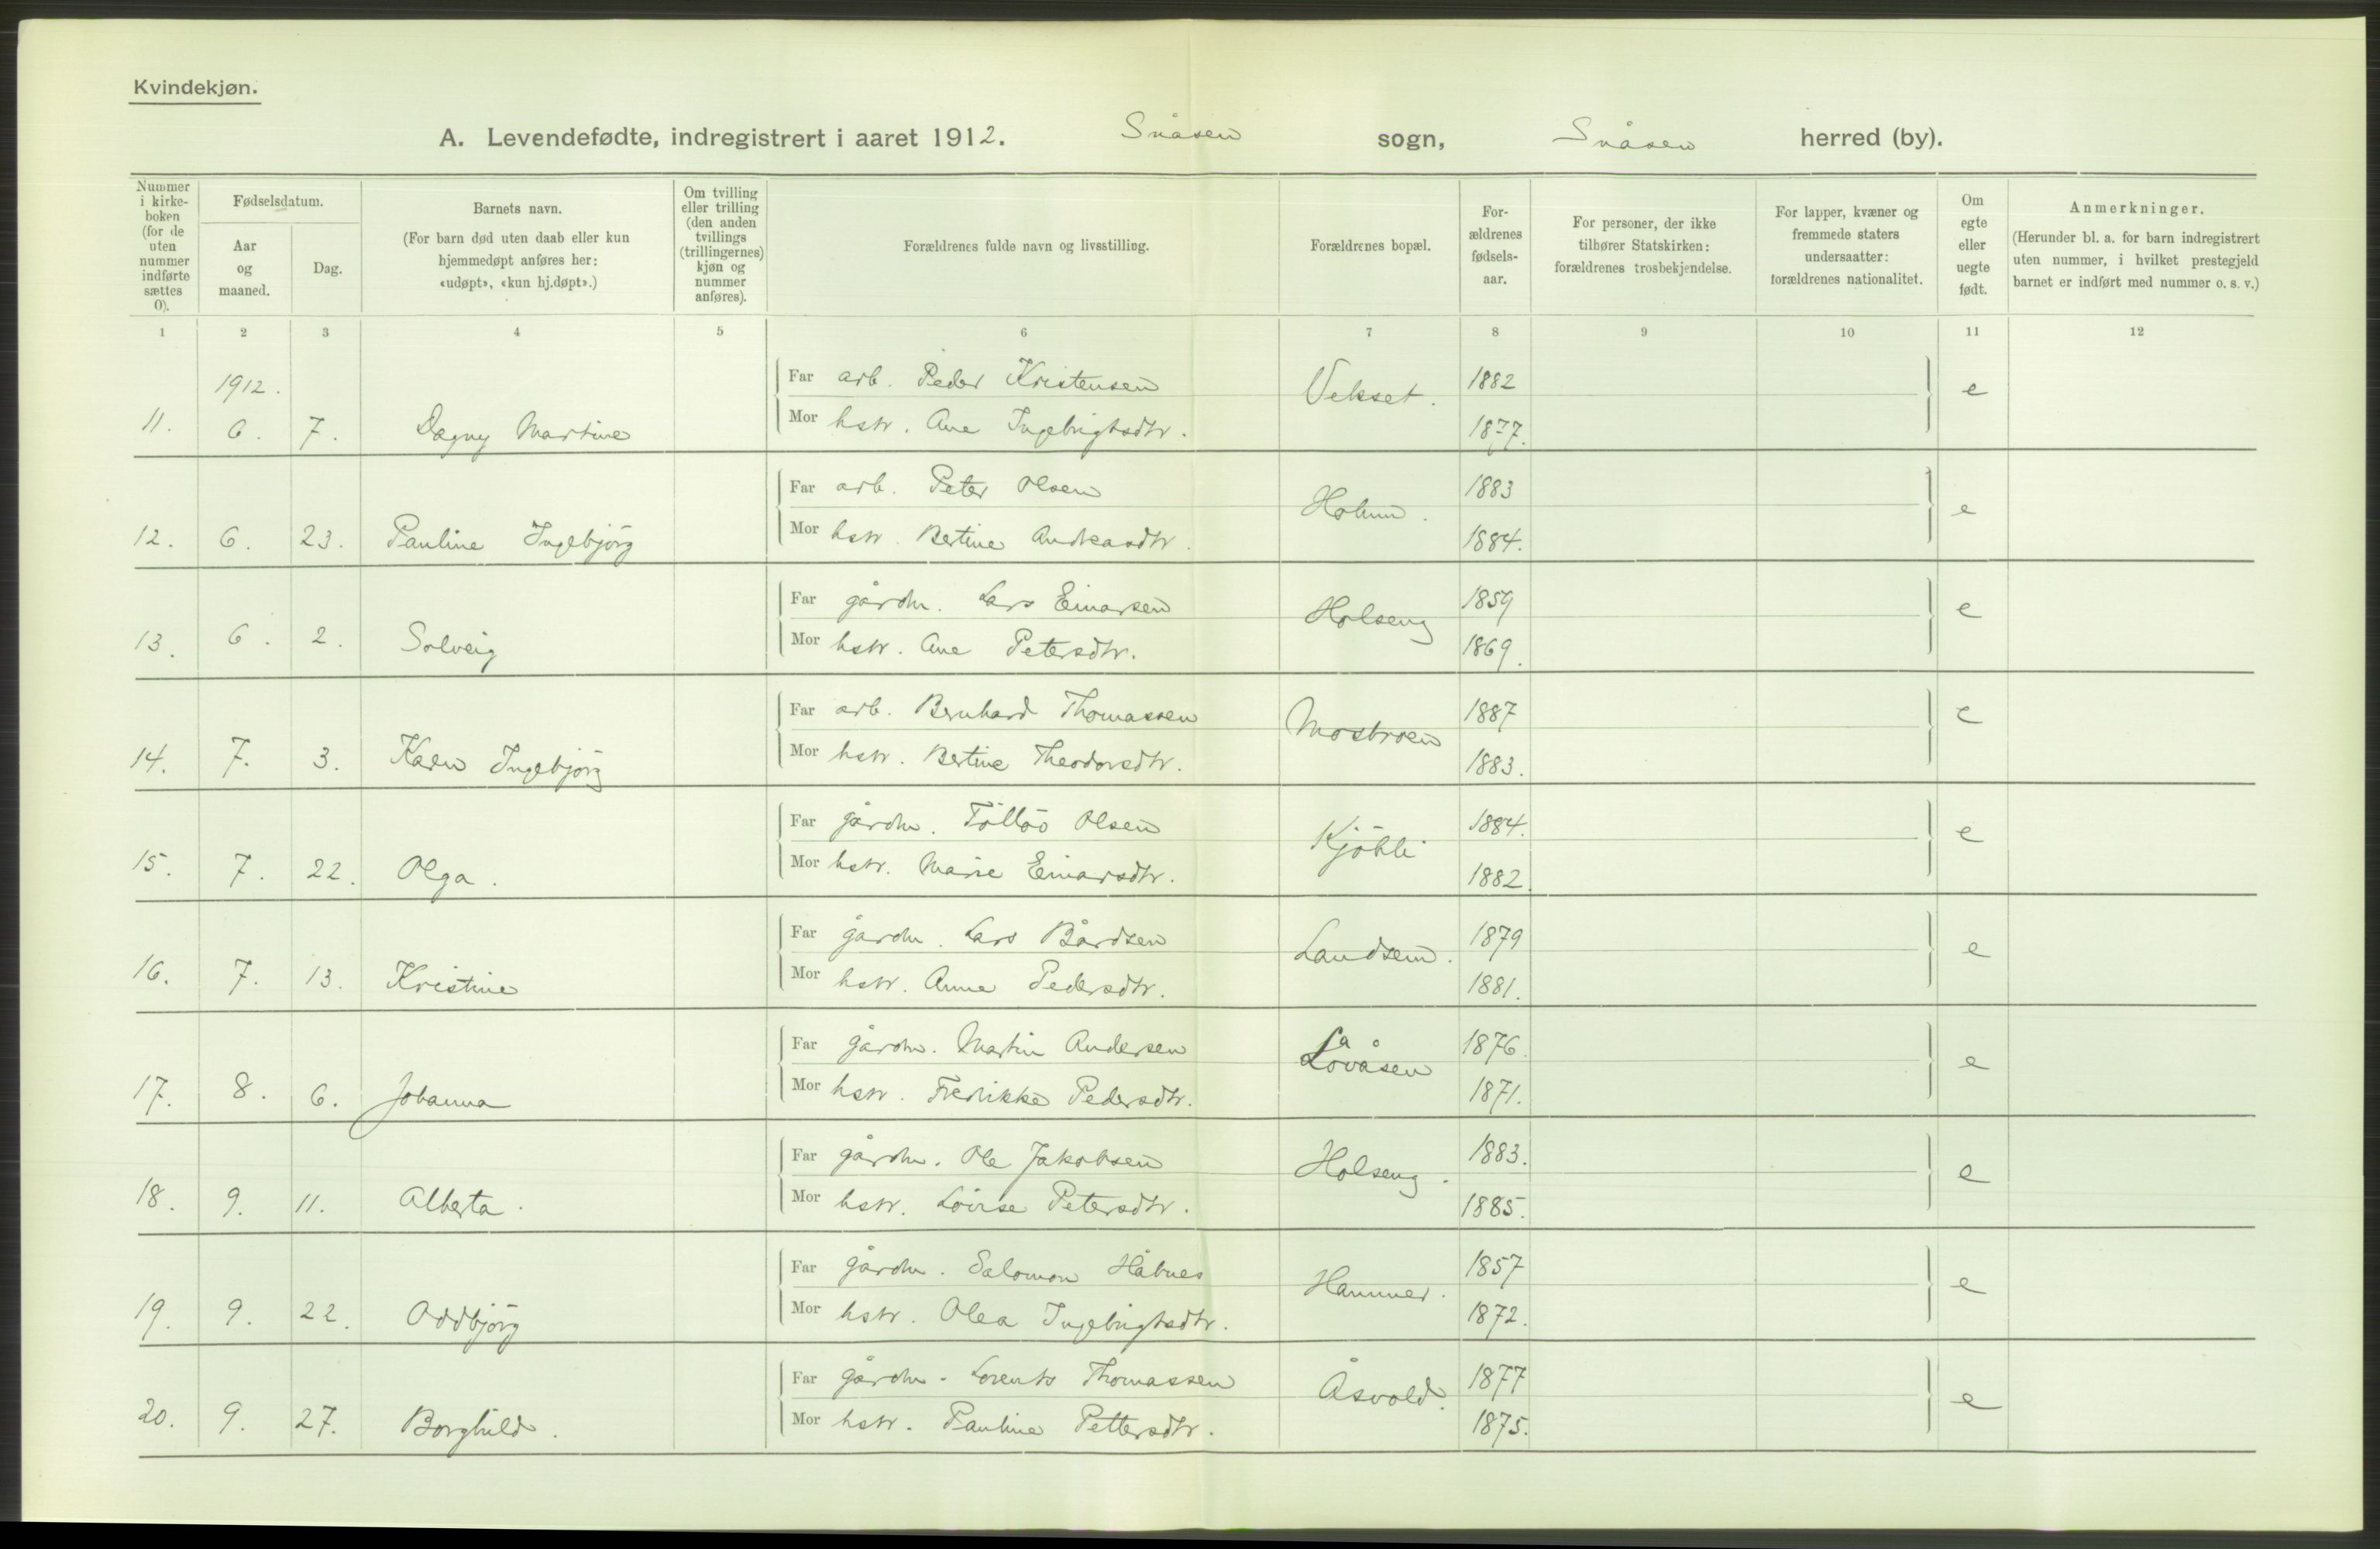 Kvindekjøn.
A. Levendefødte, indregistrert i aaret 1912. Snåsen sogn, Snåsen herred (by).
Nummer i kirkeboken (for de uten nummer indførte sættes 0).
Fødselsdatum.
Aar og maaned.
Dag.
Barnets navn.
(For barn død uten daab eller kun hjemmedøpt anføres her: «udøpt», «kun hj.døpt».)
Om tvilling eller trilling (den anden tvillings (trillingernes) kjøn og nummer anføres).
Forældrenes fulde navn og livsstilling.
Forældrenes bopæl.
Forældrenes fødselsaar.
For personer, der ikke tilhører Statskirken: forældrenes trosbekjendelse.
For lapper, kvæner og fremmede staters undersaatter: forældrenes nationalitet.
Om egte eller uegte født.
Anmerkninger.
(Herunder bl. a. for barn indregistrert uten nummer, i hvilket prestegjeld barnet er indført med nummer o. s. v.)
1 2 3 4 5 6 7 8 9 10 11 12
1912.
Far arb. Peder Kristensen Vekset. 1882 e
11. 6. 7. Dagny Martine Mor hstr. Ane Ingebrigtsdtr. 1877.
Far arb. Peter Olsen Holum. 1883 e
12. 6. 23. Pauline Ingebjörg Mor hstr. Bertine Andreasdtr. 1884.
Far gårdm. Lars Einarsen Holseng 1859 e
13. 6. 2. Solveig Mor hstr. Ane Petersdtr. 1869.
Far arb. Bernhard Thomassen Mosbroen 1887 e
14. 7. 3. Karen Ingebjörg Mor hstr. Bertine Theodorsdtr. 1883.
Far gårdm. Töllöv Olsen Kjöhli 1884. e
15. 7. 22. Olga. Mor hstr. Marie Einarsdtr. 1882.
Far gårdm. Lars Bårdsen Landsem. 1879 e
16. 7. 13. Kristine Mor hstr. Anne Pedersdtr. 1881.
Far gårdm. Martin Andersen Lovåsen 1876. e
17. 8. 6. Johanna Mor hstr. Fredrikke Pedersdtr. 1871.
Far gårdm. Ole Jakobsen Holseng. 1883. e
18. 9. 11. Alberta. Mor hstr. Lovise Petersdtr. 1885.
Far gårdm. Salomon Håbnes Hammer. 1857 e
19. 9. 22. Oddbjörg Mor hstr. Olea Ingebrigtsdtr. 1872.
Far gårdm. Lorents Thomassen Åsvold. 1877 e
20. 9. 27. Borghild. Mor hstr. Pauline Pettersdtr. 1875.